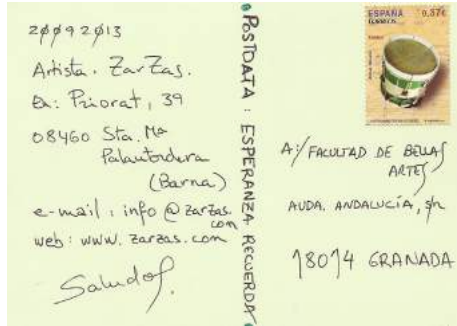 20092013
Artista. ZarZas.
En: Priorat, 39
08460 Sta. Mª
Palautordera
(Barna)
e-mail: info@zarzas.
com
web: www.zarzas.com
Saludos.
POSTDATA: ESPERANZA RECUERDA
ESPAÑA 0,37€
CORREOS
A:/ FACULTAD DE BELLAS
ARTES
AVDA. ANDALUCÍA, s/n
18014 GRANADA